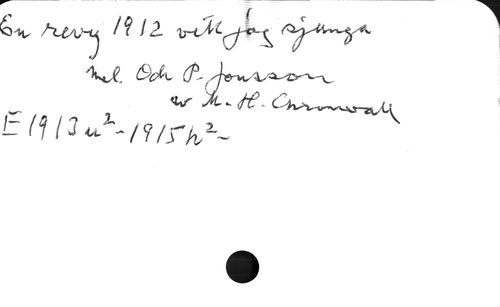 En revy 1912 vill jag sjunga
Mel. Och P. Jonsson
av M. H. Chronwall
E 1913 u²-1915 h²-